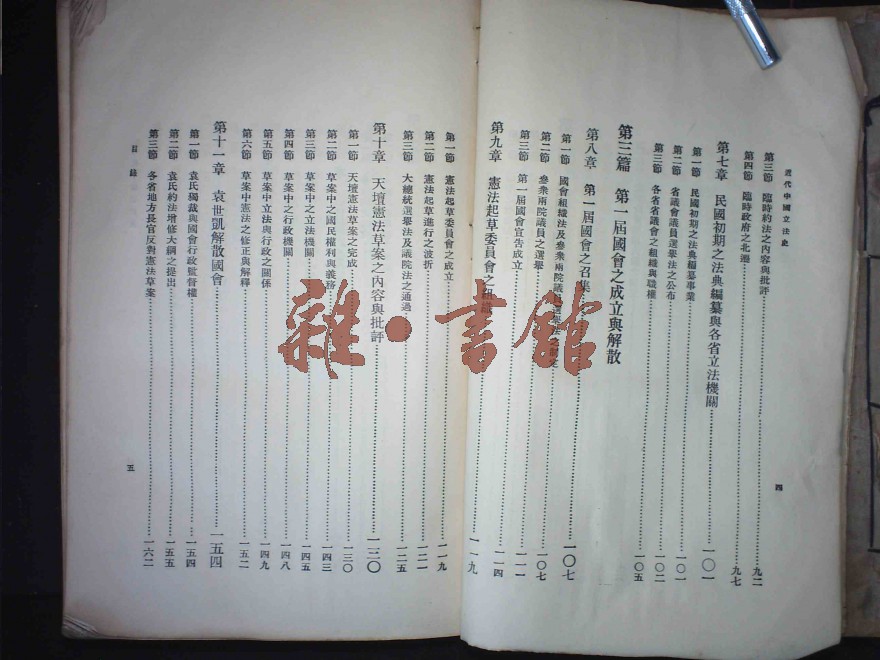 近代中國立法史
四
第三節 臨時約法之內容與批評 九二
第四節 臨時政府之北遷 九七
第七章 民國初期之法典編纂與各省立法機關 一〇一
第一節 民國初期之法典編纂事業 一〇一
第二節 省議會議員選舉法之公布 一〇二
第三節 各省省議會之組織與職權 一〇五
第三篇 第一屆國會之成立與解散
第八章 第一屆國會之召集 一〇七
第一節 國會組織法及參衆兩院議員選舉法之制定
第二節 參衆兩院議員之選舉 一〇七
第三節 第一屆國會宣告成立 一一一
第九章 憲法起草委員會之組織 一一九
第一節 憲法起草委員會之成立 一一九
第二節 憲法起草進行之波折 一二一
第三節 大總統選舉法及議院法之通過 一二五
第十章 天壇憲法草案之內容與批評 一三〇
第一節 天壇憲法草案之完成 一三〇
第二節 草案中之國民權利與義務 一四三
第三節 草案中之立法機關 一四五
第四節 草案中之行政機關 一四八
第五節 草案中立法與行政之關係 一四九
第六節 草案中憲法之修正與解釋 一五二
第十一章 袁世凱解散國會 一五四
第一節 袁氏獨裁與國會行政監督權 一五四
第二節 袁氏約法增修大綱之提出 一五五
第三節 各省地方長官反對憲法草案 一六二
目錄
五
雜·書館